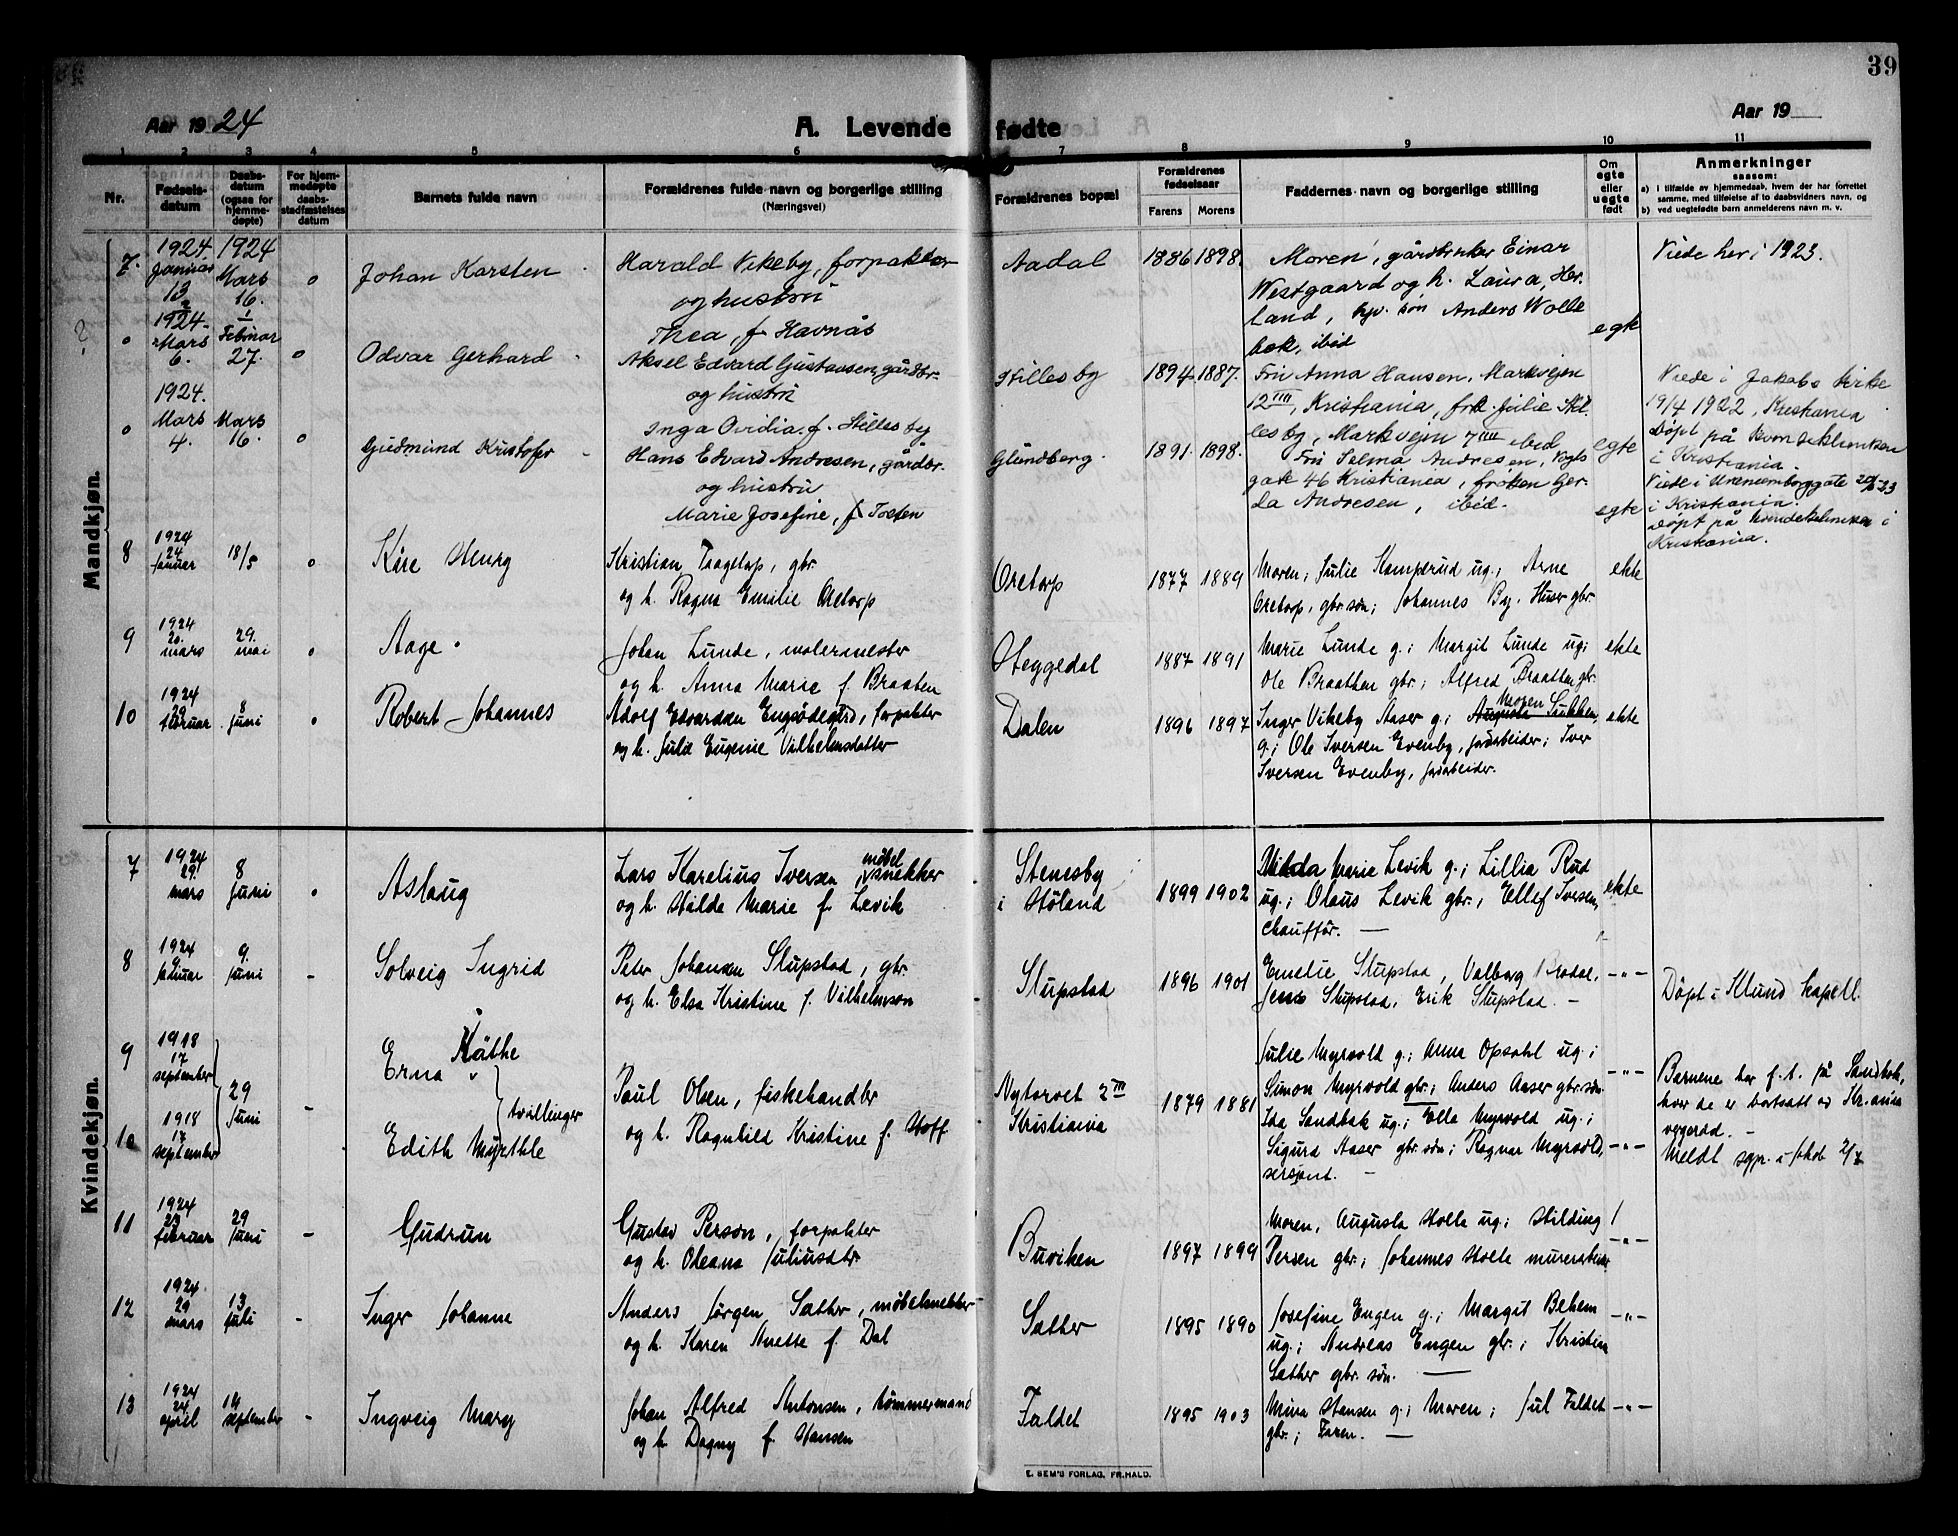 39
Aar 1924
A. Levende fødte
Aar 19
1 2 3 4 5 6 7 8 9 10 11
Nr.
Fødsels-datum
Daabs-datum (ogsaa for hjemme-døpte)
For hjem-medøpte daabs-stadfæstelses datum
Barnets fulde navn
Forældrenes fulde navn og borgerlige stilling
(Næringsvei)
Forældrenes bopæl
Forældrenes fødselsaar
Farens Morens
Faddernes navn og borgerlige stilling
Om egte eller uegte født
Anmerkninger
saasom:
a) I tilfælde av hjemmedaab, hvem der har forrettet
samme, med tilføielse af to daabsvidners navn, og
b) ved uegtefødte barn anmelderens navn m. v.
Mandkjøn.
7. 1924 Januar 13 1924 Mars 16. o Johan Karsten
Harald Vikeby, forpakter
og hustru
Thea, f. Havnås
Aadal 1886 1898.
Moren, gårdbruker Einar
Westgaard og h. Laura, Her-
land, hjv. søn Anders Wolle
bæk, ibid
egte
Viede her i 1923.
o 1924. Mars 6. Februar 27. o Odvar Gerhard
Aksel Edvard Gustavsen, gårdbr.
og hustru
Inga Ovidia, f. Hillesby
Hillesby 1894. 1887.
Fru Anna Hansen, Markvejen
12 IIII, Kristiania, frk. Julie Hil-
lesby, Markvejen 7 IIII ibid
egte
Viede i Jakobs kirke
19/4 1922, Kristiania
Døpt på Kvindeklinikken
i Kristiania.
o 1924. Mars 4. Mars 16. o Gudmund Kristofer
Hans Edvard Andresen, gårdbr.
og hustru
Marie Josefine, f. Tosten
Glundberg. 1891. 1898.
Fru Selma Andresen, Vogts
gate 46 Kristiania, frøken Ger-
da Andresen, ibid.
egte
i Kristiania.
Døpt på kvindeklinikken i
Kristiania.
8 1924 24 januar 18/5 o Kåre Henry
Kristian Taagetorp, gbr.
og h. Ragna Emilie Oretorp
Oretorp 1877 1889
Moren; Julie Kamperud ug.; Arne
Oretorp, gbr. søn; Johannes By. Huser gbr.
ekte
9 1924 20. mars 29. mai o Aage
Johan Lunde, malermester
og h. Anna Marie f. Braaten
Heggedal 1887 1891
Marie Lunde g.; Margit Lunde ug;
Ole Braathen gbr.; Alfred Braathen gbr.
ekte
10 1924 29 februar 8 juni o Robert Johannes
Adolf Edvardsen Engsødegård, forpakter
og h. Julie Eugenie Vilhelmsdatter
Dalen 1896 1897
Inger Vikeby Aaser g; Augusta Moren Sukken,
g.; Ole Iversen Evenby, jordarbeider; Iver
Iversen Evenby, jordarbeider.
ekte
Kvindekjøn.
7 1924 29. mars 8 juni o Aslaug
Lars Karelius Iversen møbelsnekker
og h. Hilda Marie f. Levik
Stenesby
i Høland 1899 1902
Hilda Marie Levik g.; Lillia Rud
ug.; Olaus Levik gbr.; Ellef Iversen,
chauffør. —
ekte
8 1924 9. januar 9. juni - Solveig Ingrid
Peter Johansen Slupstad, gbr.
og h. Elsa Kristine f. Vilhelmson
Slupstad 1896 1901
Emelie Slupstad, Valborg Krodal,
Jens Slupstad; Erik Slupstad. —
—"—
Døpt i Klund kapell.
9 1918 17 september Erna Käthe
10 1918 17 september 29 juni - Edith Myrthle
tvillinger
Paul Olsen, fiskehandler
og h. Ragnhild Kristine f. Hoff
Nytorvet 2 III
Kristiania 1879 1881
Julie Myrvold g.; Anna Opsahl ug.;
Simon Myrvold gbr.; Anders Aaser gbr. søn
Ida Sandbæk ug.; Ella Myrvold ug.;
Sigurd Aaser gbr. søn; Ragnar Myrvold,
sersjant. —
—"—
—"—
Barnene bor f. t. på Sandbæk,
hvor de er bortsatt av Kr.ania
vergeråd. —
Meldt sgpr. i Jakob 2/7
11 1924 23 februar 29 juni - Gudrun
Gustav Person, forpakter
og h. Oleana Juliusdtr.
Buviken 1897 1899
Moren, Augusta Holle ug.; Hilding
Persen gbr.; Johannes Holle murerarbeider
—"—
12 1924 29 mars 13 juli - Inger Johanne
Anders Jørgen Sæther, møbelsnekker
og h. Karen Anette f. Dal
Sæther 1895 1890
Josefine Engen g.; Margit Behem
ug.; Andreas Engen gbr.; Kristian
Sæther gbr. søn. —
—"—
13 1924 24 april 14 september - Ingveig Mary
Johan Alfred Antonsen, tømmermand
og h. Dagny f. Hansen
Faldet 1895 1903
Mina Hansen g.; Moren; Jul Faldet
gbr.; Faren. —
—"—
E. SEM'S FORLAG, FR.HALD.